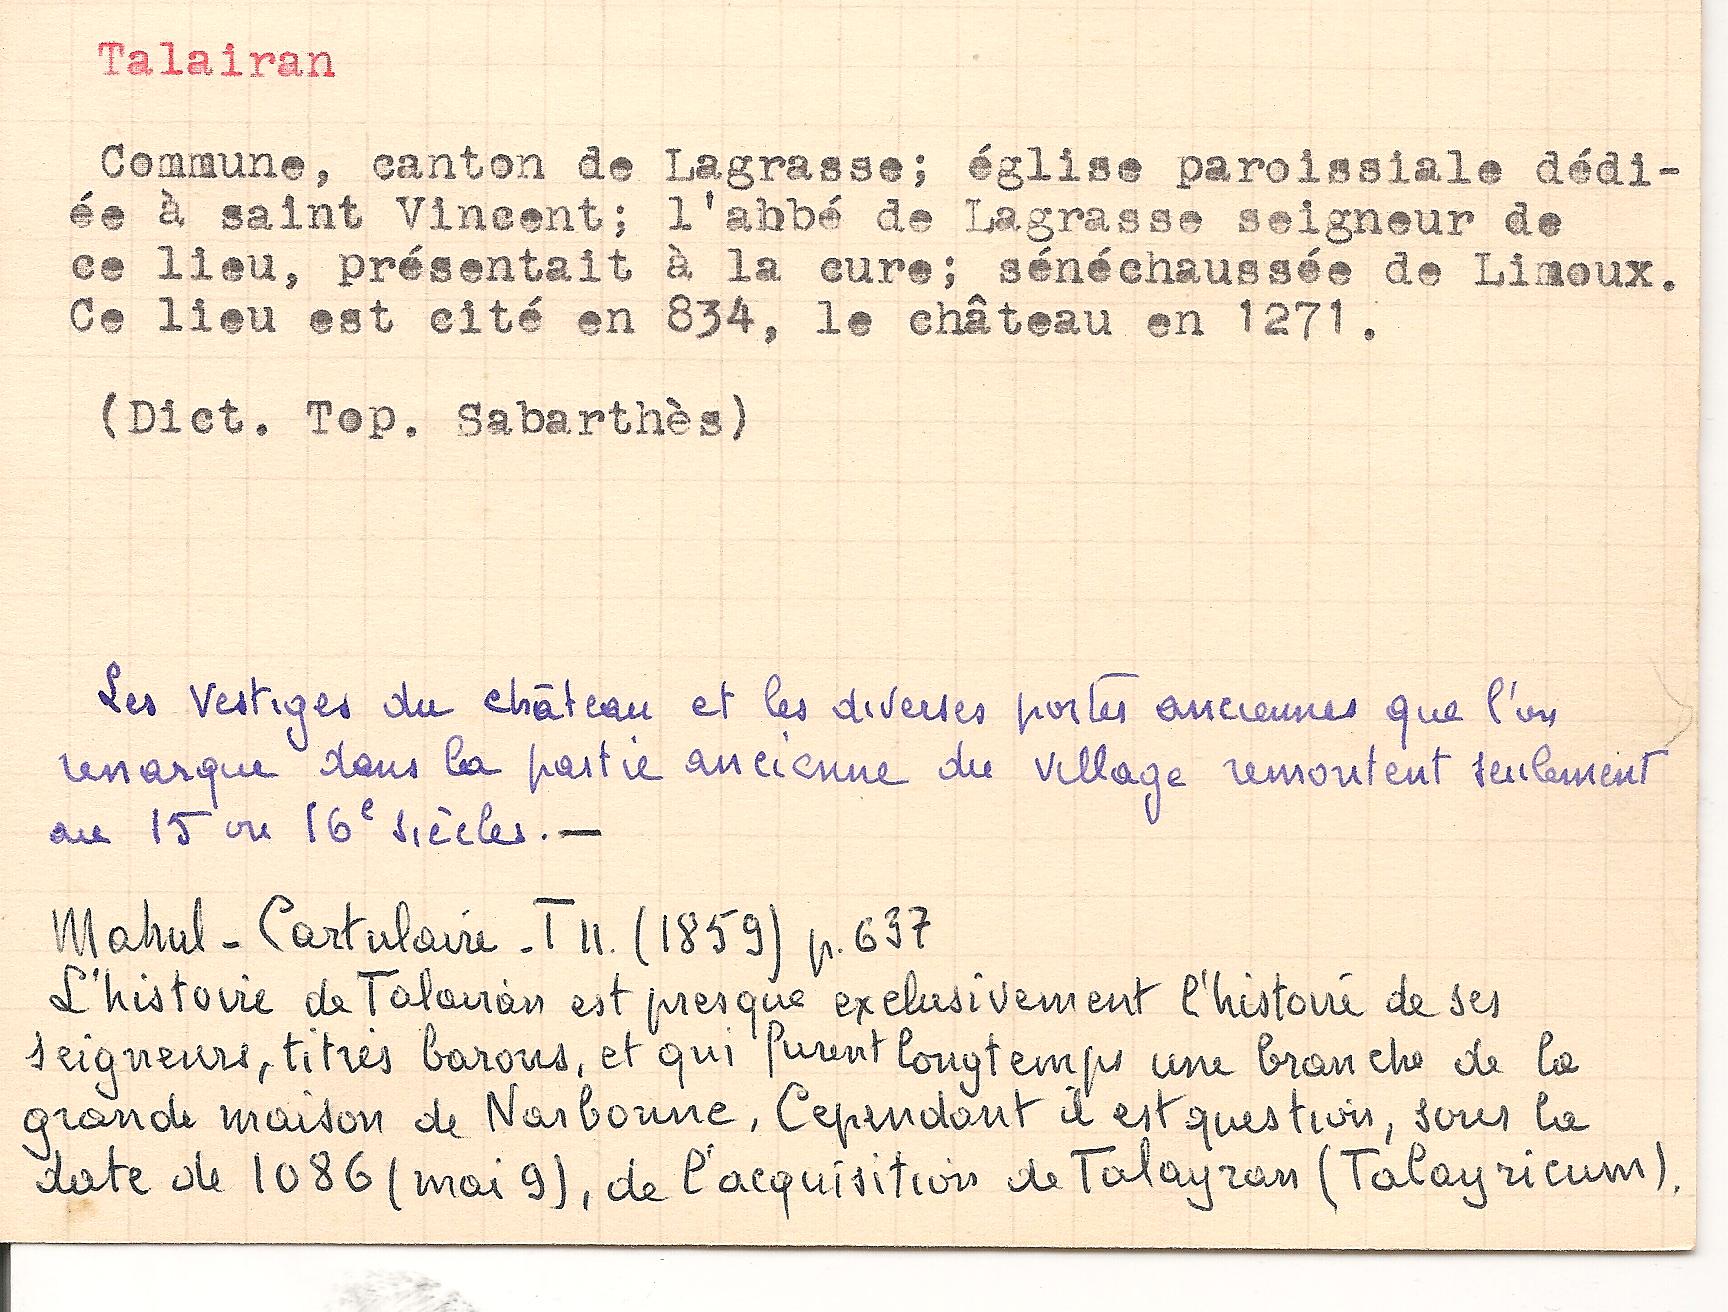 Talairan
Commune, canton de Lagrasse; église paroissiale dédi-
ée à saint Vincent; l'abbé de Lagrasse seigneur de
ce lieu, présentait à la cure; sénéchaussée de Limoux.
Ce lieu est cité en 834, le château en 1271.
(Dict. Top. Sabarthès)
Les vestiges du château et les diverses portes anciennes que l'on
remarque dans la partie ancienne du village remontent seulement
au 15 ou 16e siècles. —
Mahul - Cartulaire - T II. (1859) p. 637
L'histoire de Talairan est presque exclusivement l'histoire de ses
seigneurs, titrés barons, et qui furent longtemps une branche de la
grande maison de Narbonne. Cependant il est question, sous la
date de 1086 (mai 9), de l'acquisition de Talayran (Talayricum).